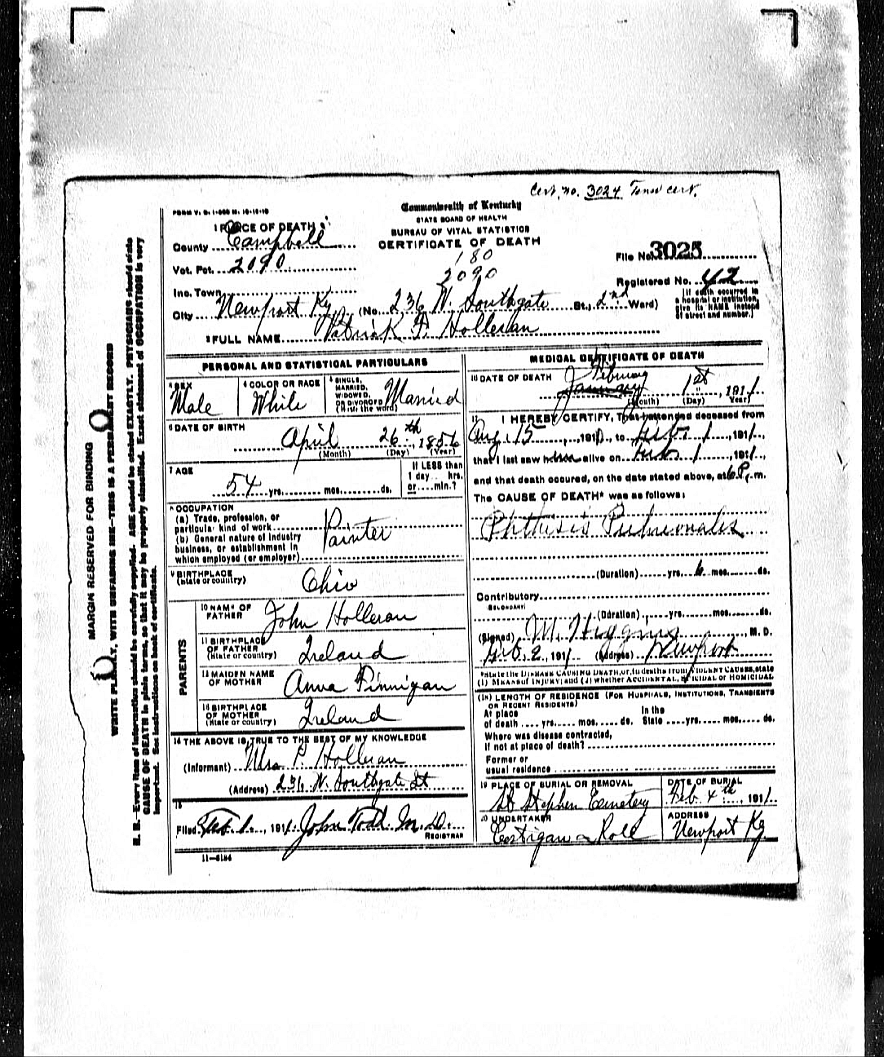 Cert. no. 3024
FORM V. S. 1
Commonwealth of Kentucky
STATE BOARD OF HEALTH
BUREAU OF VITAL STATISTICS
CERTIFICATE OF DEATH
1 PLACE OF DEATH
County Campbell
180
File No. 3025
Vot. Pct. 2090
2090
Registered No. 42
Inc. Town
[If death occurred in a hospital or institution, give its NAME instead of street and number.]
City Newport Ky (No. 236 W. Southgate St., 2nd Ward)
2 FULL NAME Patrick F. Holleran
PERSONAL AND STATISTICAL PARTICULARS
3 SEX Male
4 COLOR OR RACE White
5 SINGLE, MARRIED, WIDOWED, OR DIVORCED (Write the word) Married
6 DATE OF BIRTH
April 26th 1856
(Month) (Day) (Year)
7 AGE
54 yrs. mos. ds.
If LESS than 1 day hrs. or min.?
8 OCCUPATION
(a) Trade, profession, or particular kind of work Painter
(b) General nature of industry business, or establishment in which employed (or employer)
9 BIRTHPLACE
(State or country) Ohio
PARENTS
10 NAME OF FATHER John Holleran
11 BIRTHPLACE OF FATHER (State or country) Ireland
12 MAIDEN NAME OF MOTHER Anna Finnigan
13 BIRTHPLACE OF MOTHER (State or country) Ireland
14 THE ABOVE IS TRUE TO THE BEST OF MY KNOWLEDGE
(Informant) Mrs. P. Holleran
(Address) 236 W. Southgate St
15
Filed Feb. 1911 John Todd M.D.
REGISTRAR
11-6184
MEDICAL CERTIFICATE OF DEATH
16 DATE OF DEATH February January 1st, 1911
(Month) (Day) (Year)
17 I HEREBY CERTIFY, That I attended deceased from
Aug 15, 1910, to Feb. 1, 1911
that I last saw him alive on Feb. 1, 1911
and that death occured, on the date stated above, at 6 P. m.
The CAUSE OF DEATH* was as follows:
Phthisis Pulmonales
(Duration) yrs. 6 mos. ds.
Contributory
(SECONDARY)
(Duration) yrs. mos. ds.
(Signed) W. Higgins, M. D.
Feb. 2, 1911 (Address) Newport
*State the DISEASE CAUSING DEATH, or, in deaths from VIOLENT CAUSES, state (1) MEANS OF INJURY; and (2) whether ACCIDENTAL, SUICIDAL OR HOMICIDAL
18 LENGTH OF RESIDENCE (FOR HOSPITALS, INSTITUTIONS, TRANSIENTS OR RECENT RESIDENTS)
At place of death yrs. mos. ds. In the State yrs. mos. ds.
Where was disease contracted,
if not at place of death?
Former or
usual residence
19 PLACE OF BURIAL OR REMOVAL
St Stephen Cemetery
DATE OF BURIAL
Feb. 4th, 1911
20 UNDERTAKER
Costigan & Roll
ADDRESS
Newport Ky
MARGIN RESERVED FOR BINDING
WRITE PLAINLY, WITH UNFADING INK—THIS IS A PERMANENT RECORD
N. B.—Every item of information should be carefully supplied. AGE should be stated EXACTLY. PHYSICIANS should state
CAUSE OF DEATH in plain terms, so that it may be properly classified. Exact statement of OCCUPATION is very
important. See instructions on back of certificate.